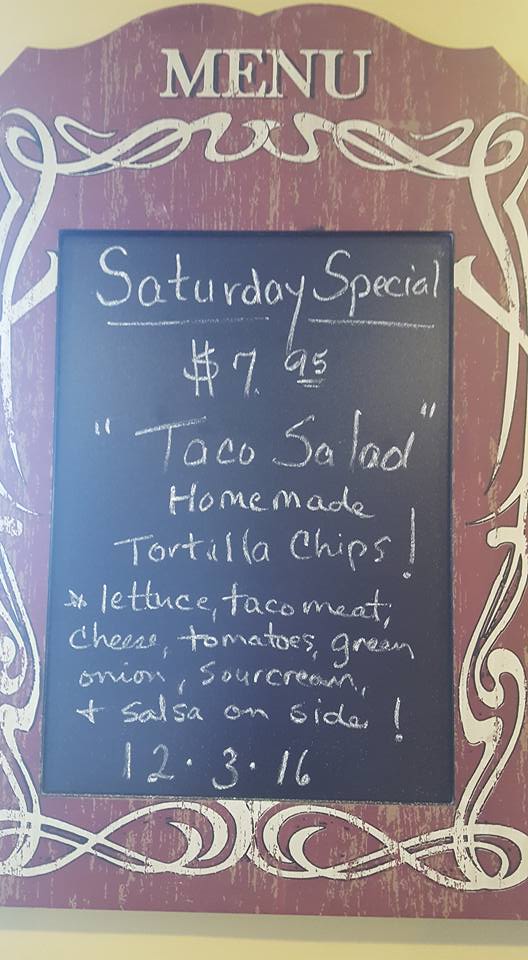 MENU
Saturday Special
$7.95
"Taco Salad"
Homemade
Tortilla Chips!
* lettuce, taco meat,
cheese, tomatoes, green
onion, sourcream,
+ salsa on side!
12.3.16